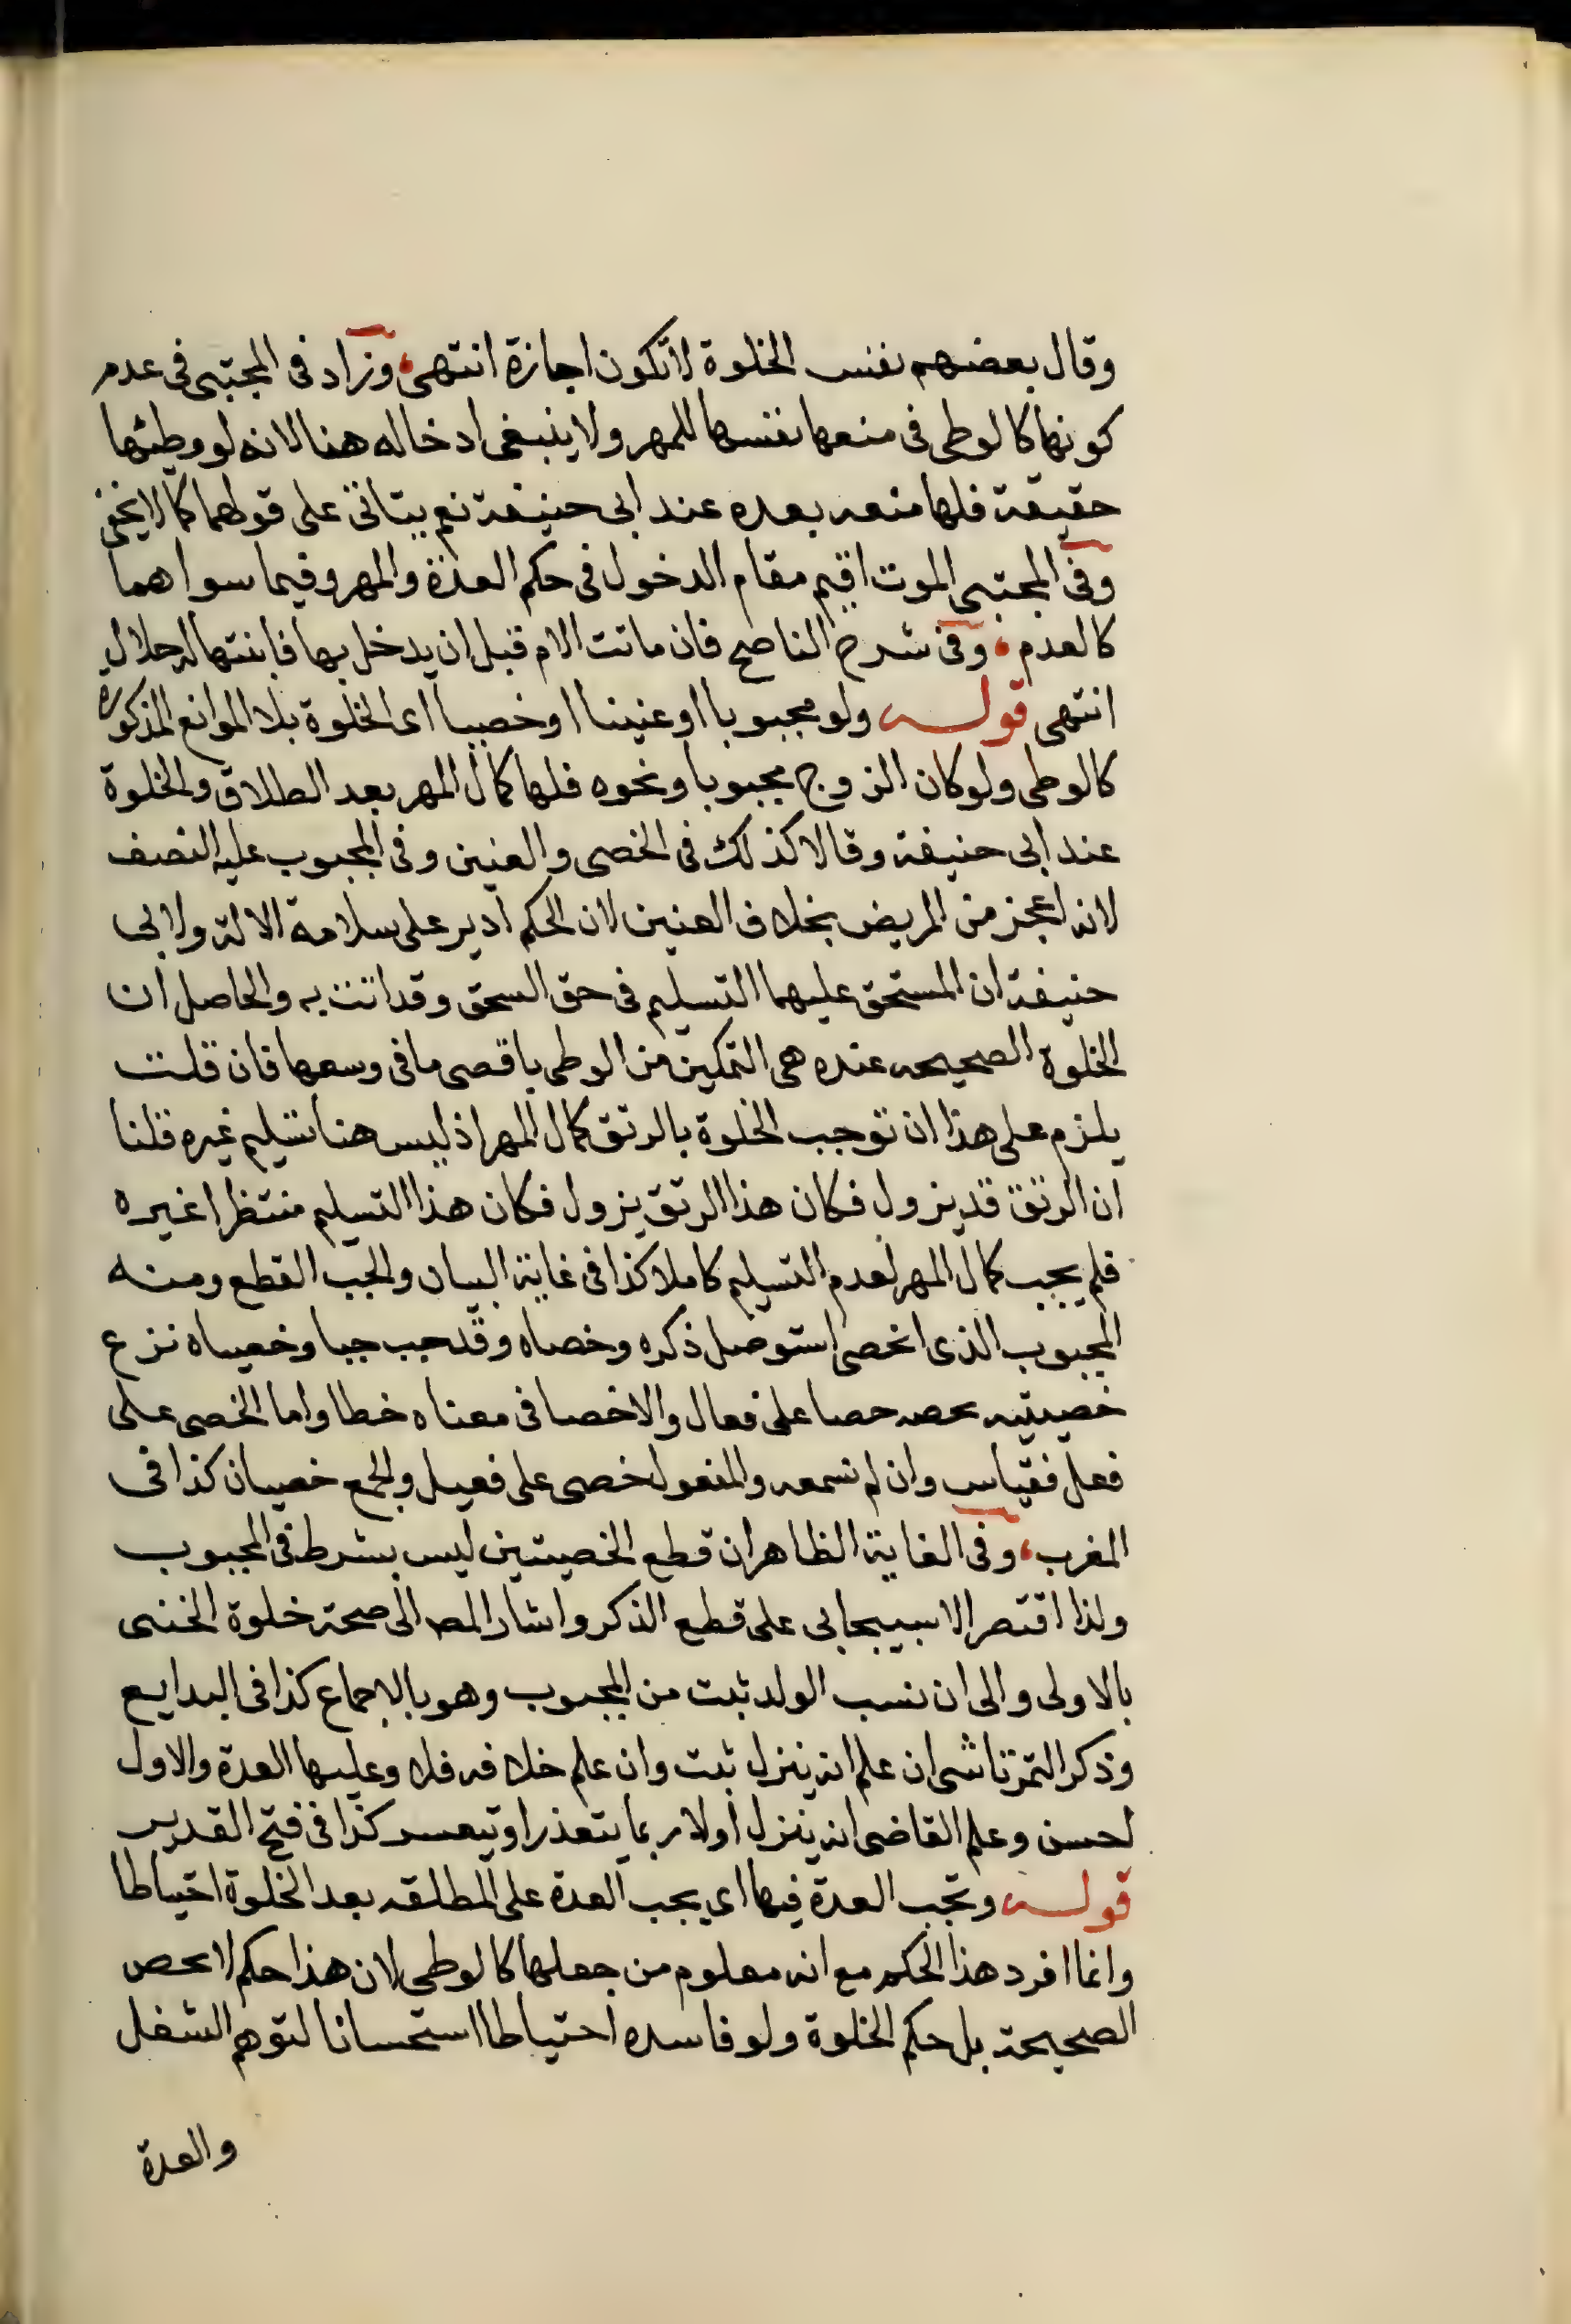 وقال بعضهم نفس الخلوة لا تكون اجازة انتهى، وزاد فى المجتبى فى عدم
كونها كالوطى فى منعها نفسها للمهر ولا ينبغى ادخاله هنا لانه لو وطيئها
حقيقة فلها منعه بعده عند ابى حنيفة نعم يتاتى على قولهما كما لا يخفى
وفى المجتبى الموت اقيم مقام الدخول فى حكم العدة والمهر وفيما سواهما
كالعدم، وفى شرح الناصح فان ماتت الام قبل ان يدخل بها فابنتها له حلال
انتهى قوله ولو مجبوبا او عنينا او خصيا اى الخلوة بلا الموانع المذكوره
كالوطى ولو كان الزوج مجبوبا ونحوه فلها كمال المهر بعد الطلاق والخلوة
عند ابى حنيفة وقالا كذلك فى الخصى والعنين وفى المجبوب عليه النصف
لانه اعجز من المريض بخلاف العنين لان الحكم ادير على سلامة الالة ولابى
حنيفة ان المستحق عليهما التسليم فى حق السحق وقد اتت به والحاصل ان
الخلوة الصحيحه عنده هى التمكين من الوطى باقصى ما فى وسعها فان قلت
يلزم على هذا ان توجب الخلوة بالرتق كمال المهر اذ ليس هنا تسليم غيره قلنا
ان الرتق قد يزول فكان هذا الرتق يزول فكان هذا التسليم منتظرا غيره
فلم يجب كمال المهر لعدم التسليم كاملا كذا فى غاية البيان والجب القطع ومنه
المجبوب الذى انخصى استوصل ذكره وخصاه وقد جب جبا وخصياه نزع
خصيتيه يحصه حصا على فعال والاخصا فى معناه خطا واما الخصى على
فعل فقياس وان لم نسمعه والمفعول خصى على فعيل والجمع خصيان كذا فى
المغرب، وفى الغاية الظاهر ان قطع الخصيتين ليس بشرط فى المجبوب
ولذا اقتصر الاسبيجابى على قطع الذكر واشار المص الى صحة خلوة الخنثى
بالاولى والى ان نسب الولد ثبت من المجبوب وهو بالاجماع كذا فى البدايع
وذكر التمرتاشى ان علم انه ينزل ثبت وان علم خلافه فلا وعليها العدة والاول
احسن وعلم القاضى انه ينزل اولا ربما يتعذر او يتعسر كذا فى فتح القدير
قوله وتجب العدة فيها اى يجب العدة على المطلقه بعد الخلوة احتياطا
وانما افرد هذا الحكم مع انه معلوم من جعلها كالوطى لان هذا حكم لا يخص
الصحيحة بل حكم الخلوة ولو فاسده احتياطا استحسانا لتوهم الشغل
والعدة